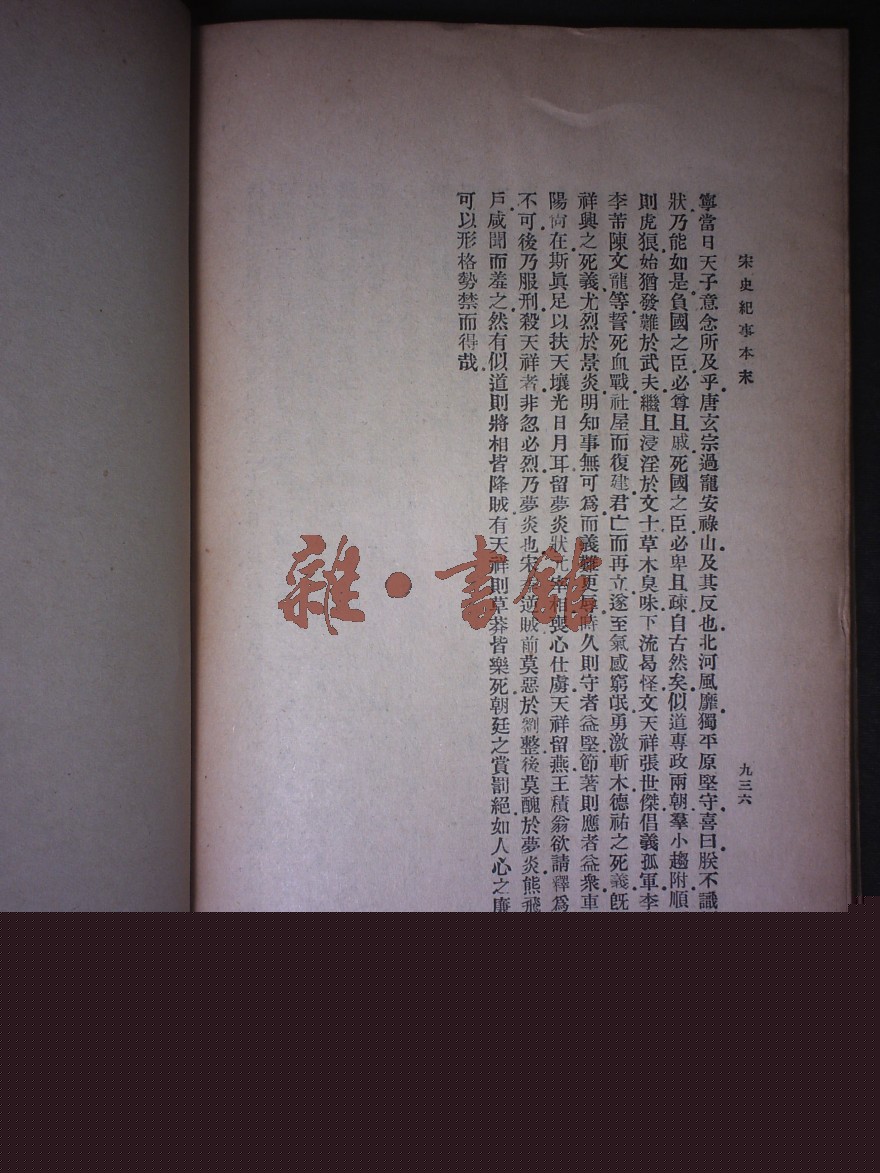 宋史紀事本末
九三六
寧當日天子意念所及乎唐玄宗過寵安祿山及其反也北河風靡獨平原堅守喜曰朕不識
狀乃能如是負國之臣必尊且戚死國之臣必卑且疎自古然矣似道專政兩朝羣小趨附順
則虎狼始猶發難於武夫繼且浸淫於文士草木臭味下流曷怪文天祥張世傑倡義孤軍李
李芾陳文龍等誓死血戰社屋而復建君亡而再立遂至氣感窮氓勇激斬木德祐之死義旣
祥興之死義尤烈於景炎明知事無可爲而義難更辱時久則守者益堅節著則應者益衆車
陽尚在斯眞足以扶天壤光日月耳留夢炎狀元宰相喪心仕虜天祥留燕王積翁欲請釋爲
不可後乃服刑殺天祥者非忽必烈乃夢炎也宋逆賊前莫惡於劉整後莫醜於夢炎熊飛
戶咸聞而羞之然有似道則將相皆降賊有天祥則草莽皆樂死朝廷之賞罰絕如人心之廉
可以形格勢禁而得哉
雜·書館